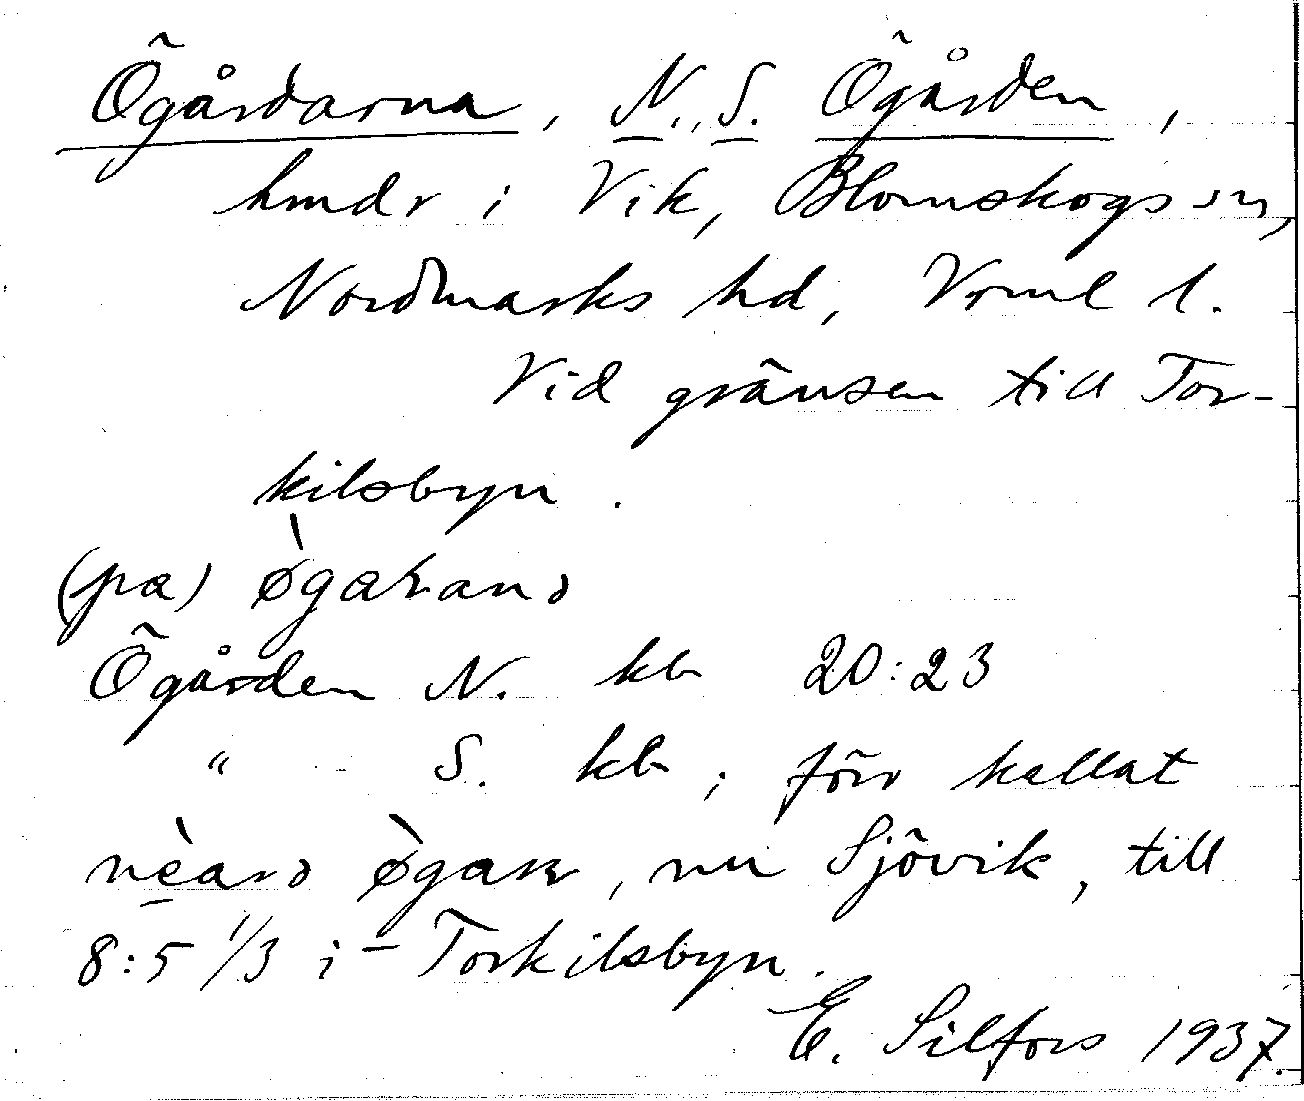 Ögårdarna, N., S. Ögården,
hmdr i Vik, Blomskogs sn,
Nordmarks hd, Vrml l.
Vid gränsen till Tor-
kilsbyn.
(pa)
Ögården N. kb 20:23
" S. kb; förr kallat
, nu Sjövik, till
8:5 1/3 i Torkilsbyn.
E. Silfors 1937.